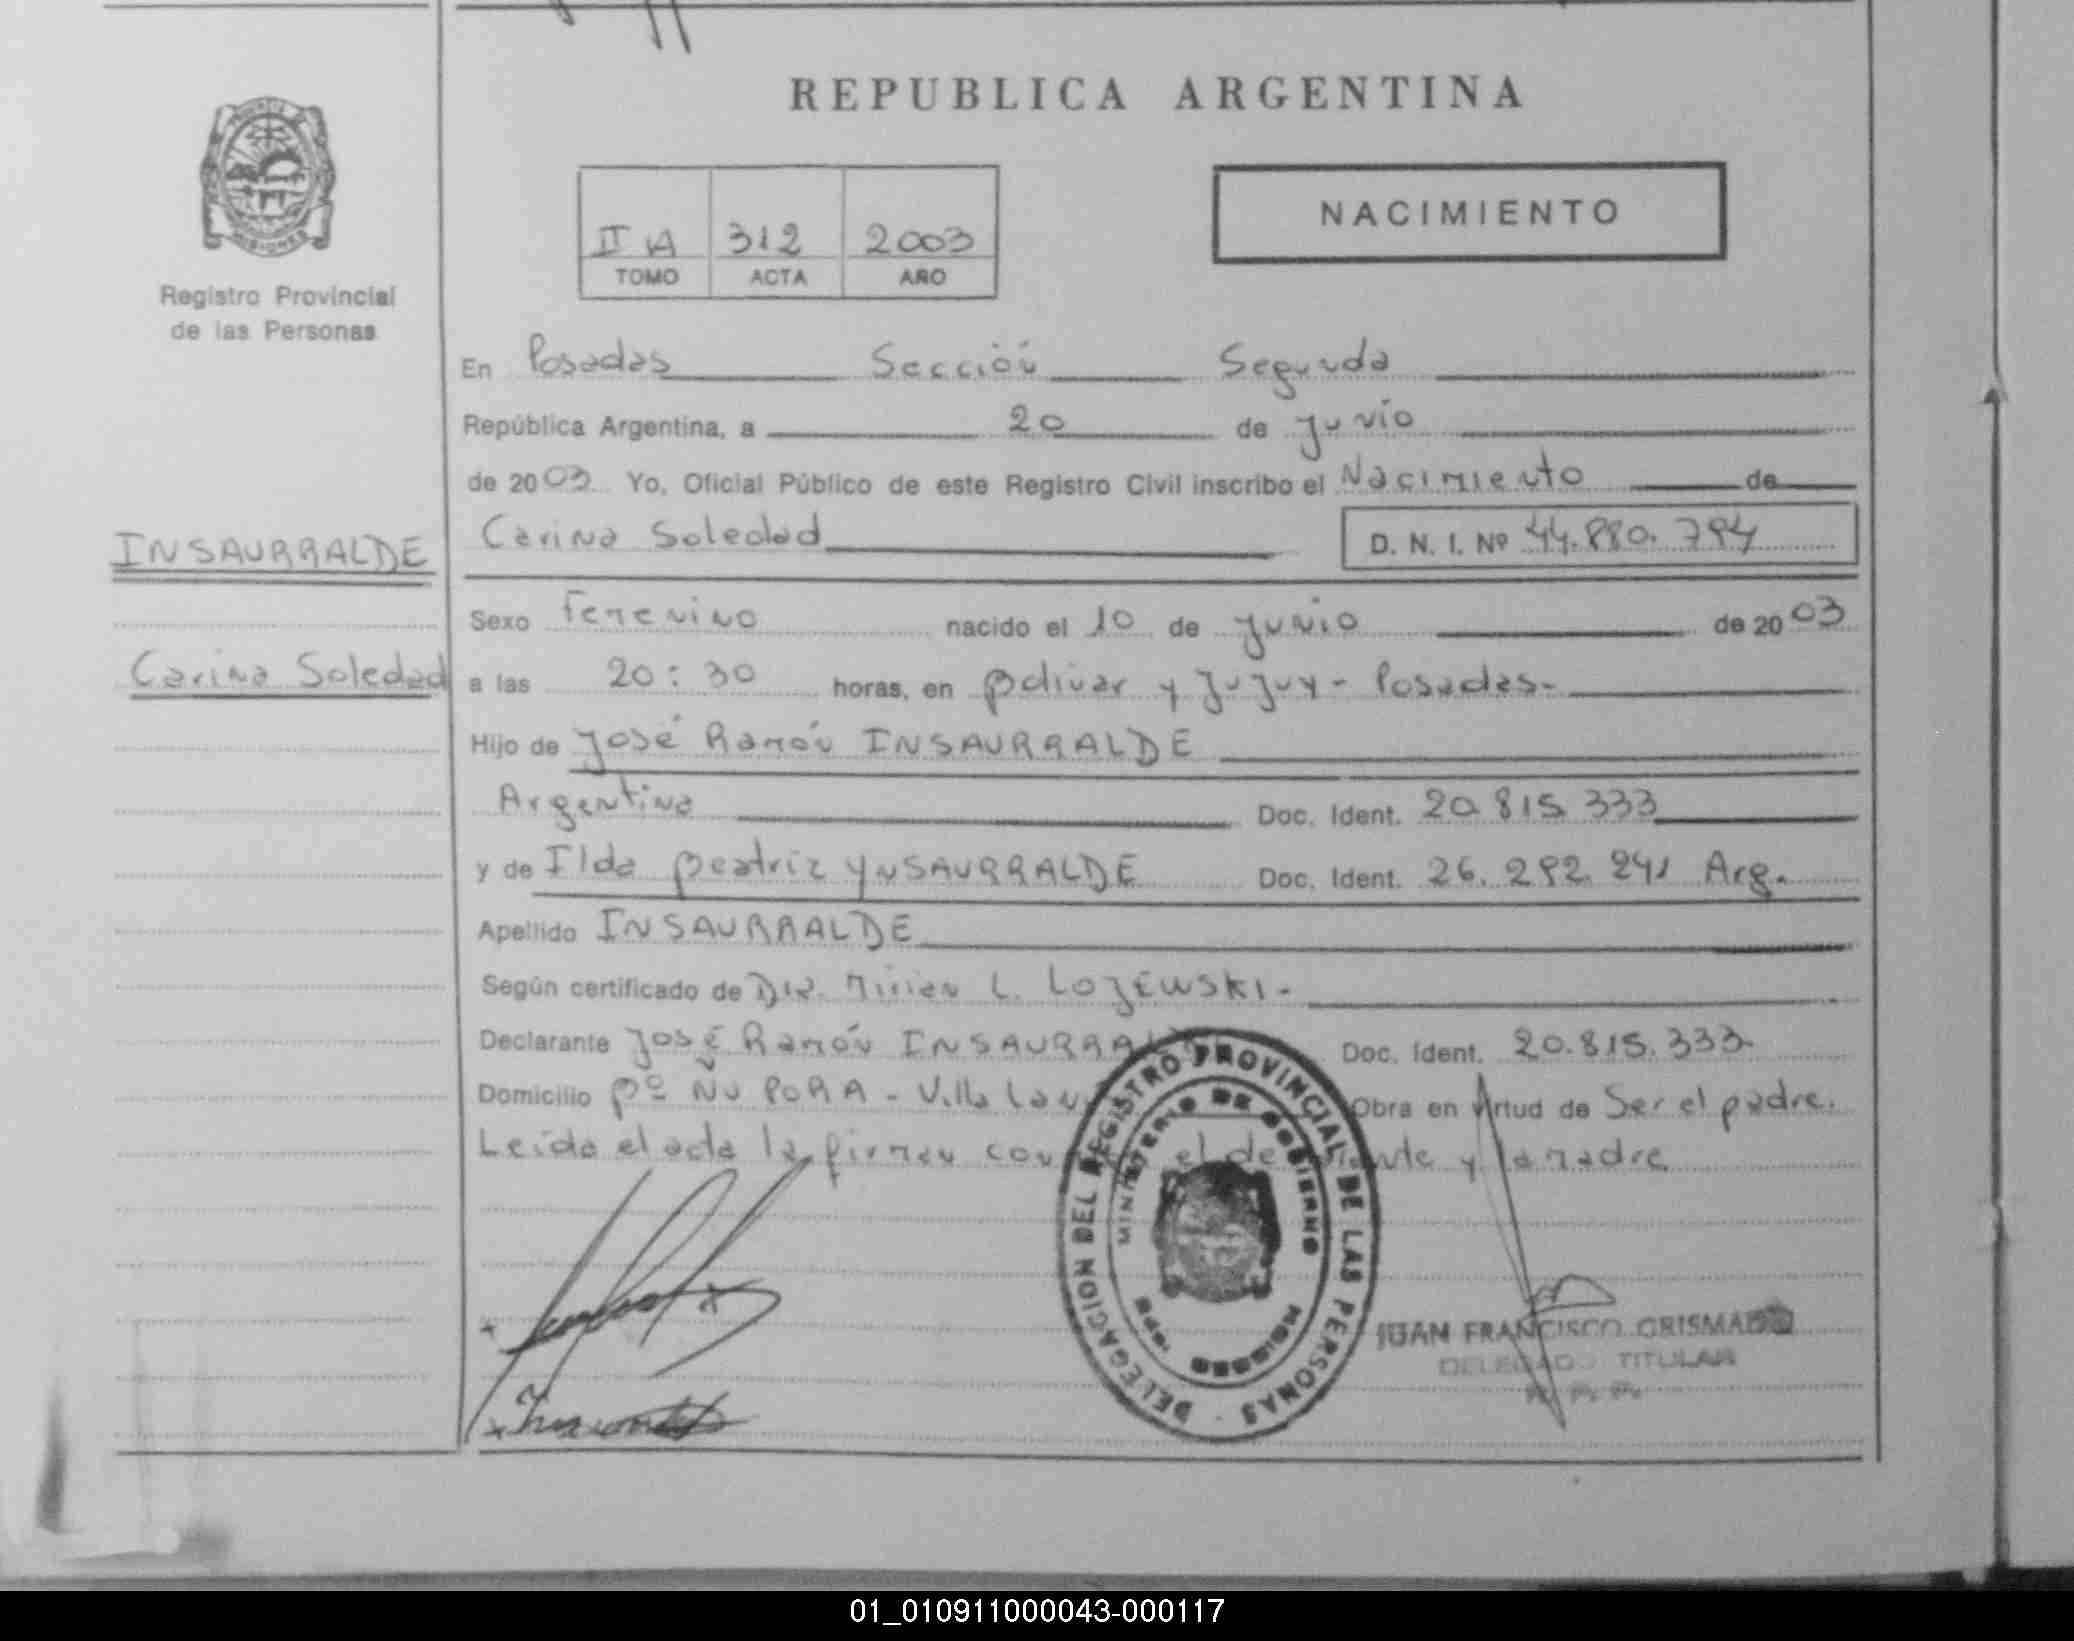 REPUBLICA ARGENTINA
MISIONES
Registro Provincial
de las Personas
II A 312 2003
TOMO ACTA AÑO
NACIMIENTO
En Posadas Sección Segunda
República Argentina, a 20 de junio
de 2003 Yo, Oficial Público de este Registro Civil inscribo el Nacimiento de
INSAURRALDE
Carina Soledad
Carina Soledad D. N. I. Nº 44.880.794
Sexo Femenino nacido el 10 de junio de 2003
a las 20:30 horas, en Bolivar y Jujuy - Posadas-
Hijo de José Ramón INSAURRALDE
Argentina Doc. Ident. 20.815.333
y de Ilda Beatriz YNSAURRALDE Doc. Ident. 26.292.241 Arg.
Apellido INSAURRALDE
Según certificado de Dra. Mirien L. LOJEWSKI-
Declarante José Ramón INSAURRAL Doc. Ident. 20.815.333-
Domicilio Bº ÑU PORA - Villa Obra en virtud de Ser el padre.
Leída el acta la firman el y la madre
DELEGACION DEL REGISTRO PROVINCIAL DE LAS PERSONAS
MINISTERIO DE GOBIERNO
JUAN FRANCISCO GRISMADO
DELEGADO TITULAR
R. P. P.
01_010911000043-000117